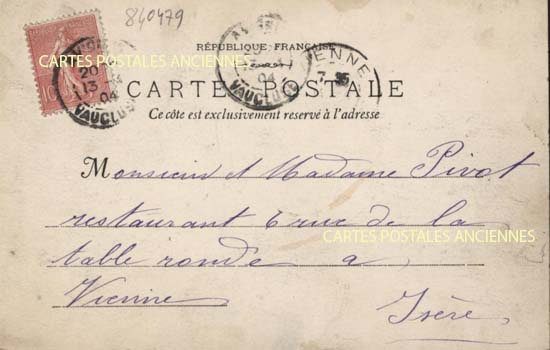 840479
RÉPUBLIQUE FRANÇAISE
CARTE POSTALE
Ce côté est exclusivement réservé à l'adresse
CARTES POSTALES ANCIENNES
20
13
04
VAUCLUSE
04
VAUCLUSE
VIENNE
10
Monsieur et Madame Pivot
restaurant 6 rue de la
CARTES POSTALES ANCIENNES
table ronde a
Vienne
Isère